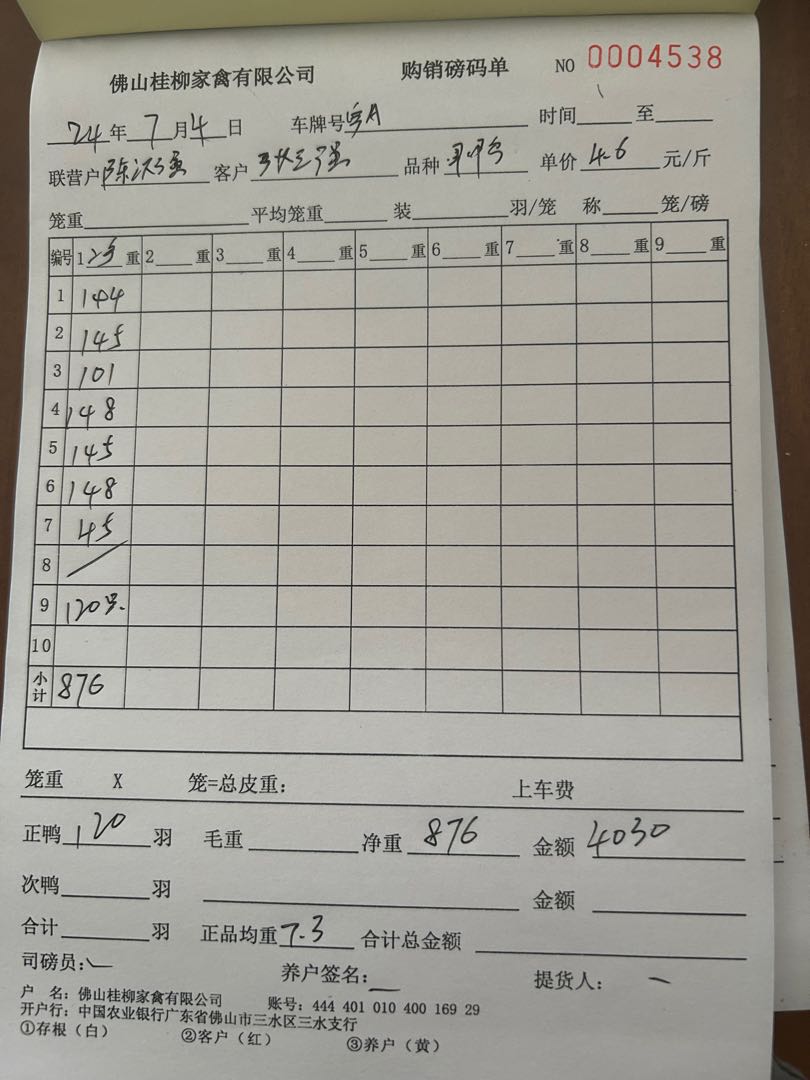 佛山桂柳家禽有限公司 购销磅码单 NO 0004538
24年7月4日 车牌号粤A 时间 至
联营户陈 客户 张三强 品种 单价 4.6 元/斤
笼重 平均笼重 装 羽/笼 称 笼/磅
编号 1 重 2 重 3 重 4 重 5 重 6 重 7 重 8 重 9 重
1 144
2 145
3 101
4 148
5 145
6 148
7 45
8 /
9 120只.
10
小计 876
笼重 X 笼=总皮重: 上车费
正鸭 120 羽 毛重 净重 876 金额 4030
次鸭 羽 金额
合计 羽 正品均重 7.3 合计总金额
司磅员: 养户签名: 提货人:
户 名: 佛山桂柳家禽有限公司 账号: 444 401 010 400 169 29
开户行: 中国农业银行广东省佛山市三水区三水支行
①存根(白) ②客户(红) ③养户(黄)